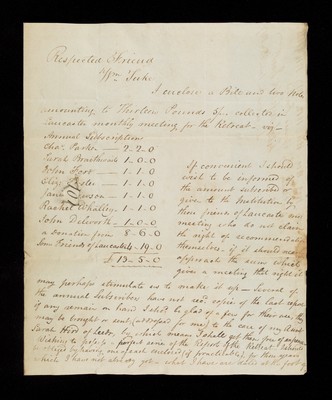 Respected Friend
Wm Tuke
I enclose a Bill and two Notes
amounting to Thirteen Pounds 5/- collected in
Lancaster monthly meeting for the Retreat - viz -
Annual Subscription
Chas. Parker - 2-2-0
Sarah 1-0-0
John 1-1-0
Eliz 1-1-0
Jane 1-1-0
Rachel Whalley 1-1-0
John Dilworth 1-0-0
a donation from 8-6-0
Some Friends of Lancaster 4-19-0
£13-5-0
If convenient I should
wish to be informed of
the amount subscribed or
given to the Institution by
the friends of Lancaster
meeting who do not claim
the right of recommending
themselves, if it should near
approach the sum which
gives a meeting that right it
may perhaps stimulate us to make it up - Several of
the annual Subscribers have not read copies of the last report
if any remain on hand I shod. be glad of a few for their use, they
may be brought or sent (addressed for me) to the care of my Aunt
Sarah Hird of Leeds, by which means I shall get them free of expense
Wishing to possess a perfect series of the Reports of the Retreat I should be
obliged by having one of each period (if practicable) for those years
which I have not already got - what I have are dated at the foot of